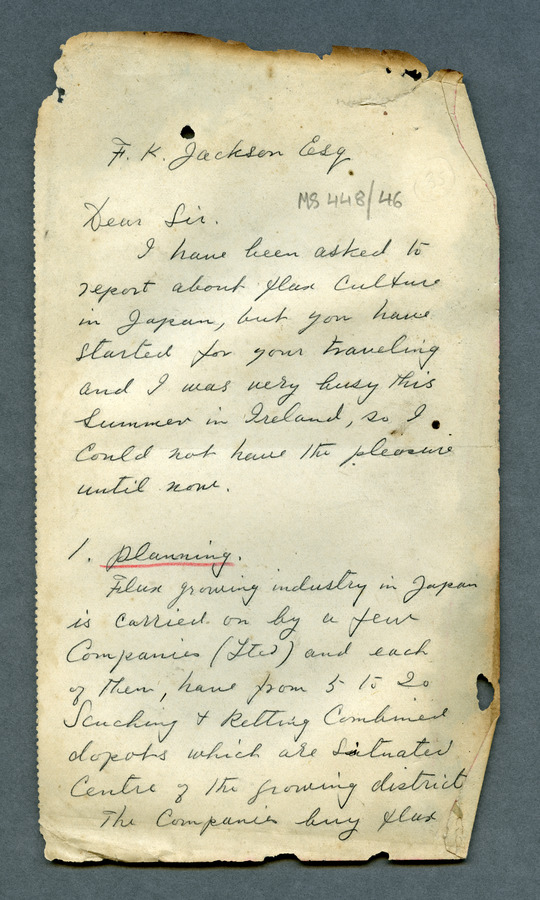 F. K. Jackson Esq
33
MS 448/46
Dear Sir.
I have been asked to
report about flax Culture
in Japan, but you have
started for your traveling
and I was very busy this
summer in Ireland, so I
Could not have the pleasure
until now.
1. planning.
Flax growing industry in Japan
is carried on by a few
Companies (Lted) and each
of them, have from 5 to 20
Scuching & Retting Combined
dopots which are situated
Centre of the growing district
The Companies buy flax